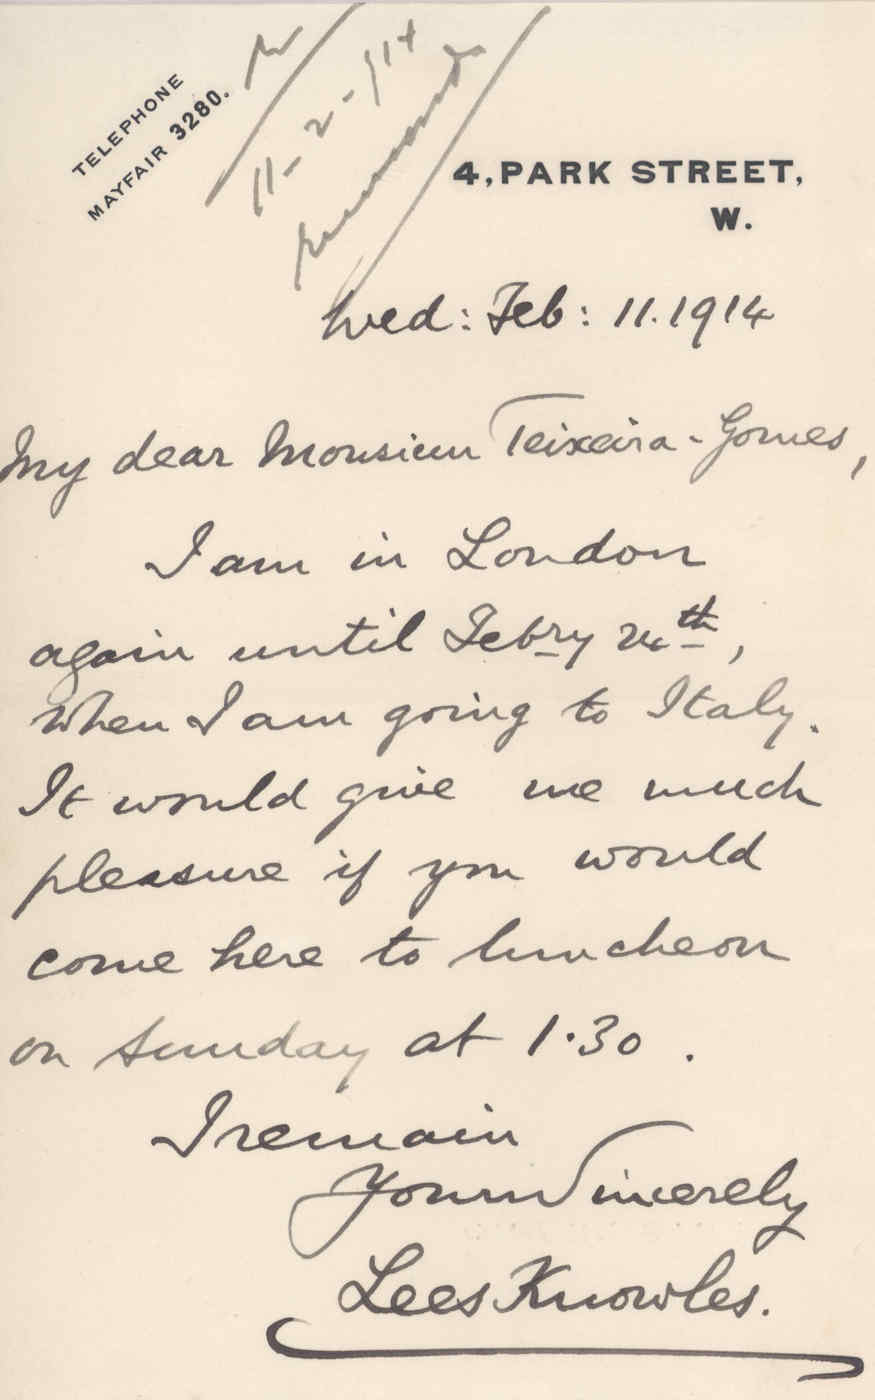 TELEPHONE
MAYFAIR 3280.
R/
11-2-914
4, PARK STREET,
W.
Wed: Feb: 11. 1914
My dear Monsieur Teixeira-Gomes,
I am in London
again until Febry 24th,
when I am going to Italy.
It would give me much
pleasure if you would
come here to luncheon
on Sunday at 1.30.
I remain
Yours Sincerely
Lees Knowles.